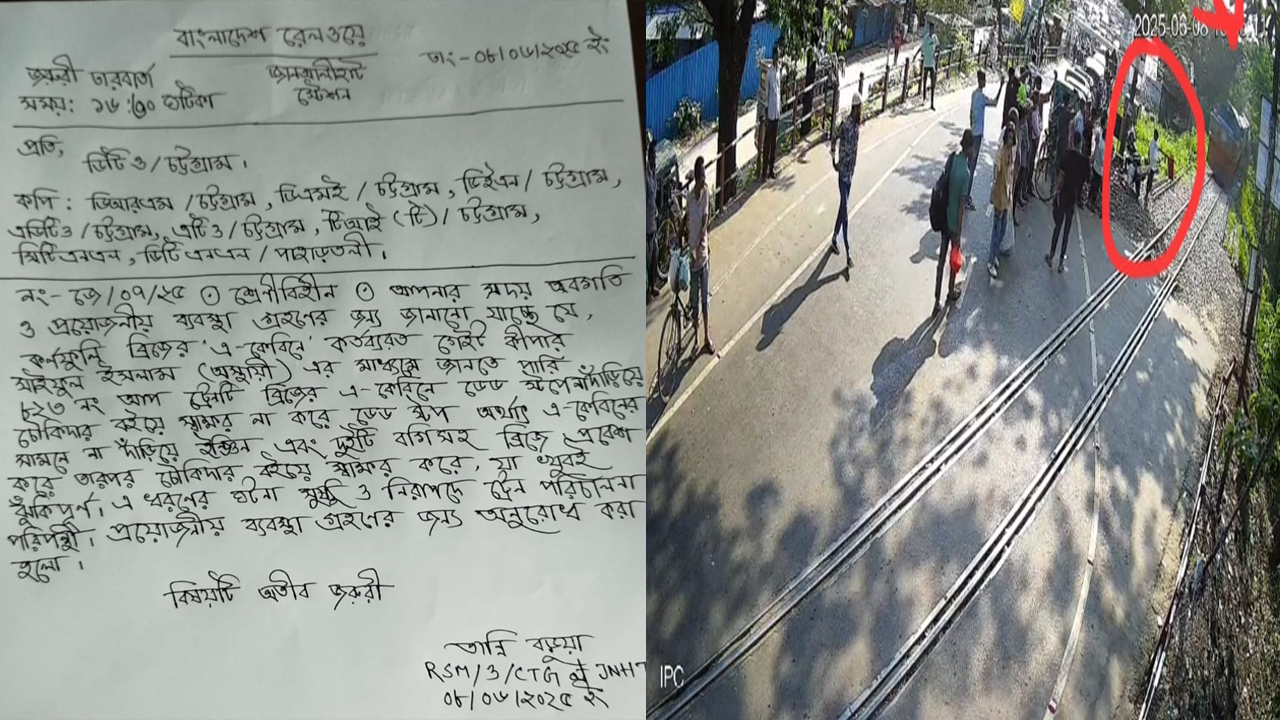 বাংলাদেশ রেলওয়ে
জরুরী তারবার্তা জানআলীহাট তাং-০৮/০৬/২০২৫ ইং
সময়: ১৬:৫০ ঘটিকা স্টেশন
প্রতি,
ডিটিও/চট্টগ্রাম।
কপি: ডিআরএম/চট্টগ্রাম, ডিএমই/চট্টগ্রাম, ডিইএন/চট্টগ্রাম,
এডিটিও/চট্টগ্রাম, এটিও/চট্টগ্রাম, টিআই (টি)/চট্টগ্রাম,
সিটিএনএল, ডিটিএনএল/পাহাড়তলী।
নং-জে/০৭/২৫ ⊙ শ্রেণীবিহীন ⊙ আপনার সদয় অবগতি
ও প্রয়োজনীয় ব্যবস্থা গ্রহণের জন্য জানানো যাচ্ছে যে,
কর্ণফুলি ব্রিজের 'এ-কেবিনে' কর্তব্যরত গেইট কীপার
সাইফুল ইসলাম (অস্থায়ী) এর মাধ্যমে জানতে পারি
৮২৩ নং আপ ট্রেনটি ব্রিজের এ-কেবিনে ডেড স্টপে না দাঁড়িয়ে
চৌকিদার বইয়ে স্বাক্ষর না করে ডেড স্টপ অর্থাৎ এ-কেবিনের
সামনে না দাঁড়িয়ে ইঞ্জিন এবং দুইটি বগি সহ ব্রিজে প্রবেশ
করে তারপর চৌকিদার বইয়ে স্বাক্ষর করে, যা খুবই
ঝুঁকিপূর্ণ। এ ধরণের ঘটনা সুষ্ঠু ও নিরাপদে ট্রেন পরিচালনা
পরিপন্থী। প্রয়োজনীয় ব্যবস্থা গ্রহণের জন্য অনুরোধ করা
হলো।
বিষয়টি অতীব জরুরী
তান্নি বড়ুয়া
RSM/3/CTG JNHT
০৮/০৬/২০২৫ ইং
2025-06-08
IPC